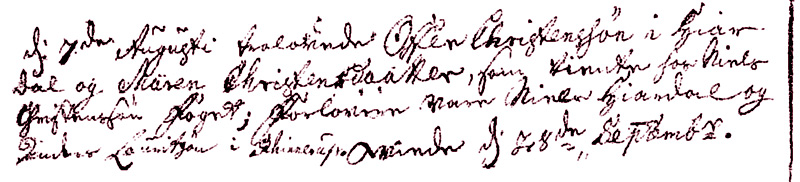 dj 7de Augusti trolovede Ofle Christenshøn i Hiar
dal og Maren Christensdaatter, som tiente hos Niels
Christenshøn Foget; Forlovere vare Niels Hiardal og
Anders Lauritzøn i viede dj 28de Septembr.